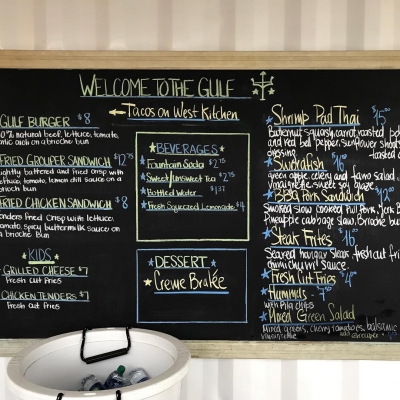 WELCOME TO THE GULF
← Tacos on West Kitchen
GULF BURGER $8
100% natural beef, lettuce, tomato,
onion each on a brioche bun
FRIED GROUPER SANDWICH $12.75
lightly battered and fried crisp with
lettuce, tomato, lemon dill sauce on a
brioche bun
FRIED CHICKEN SANDWICH $8
tenders fried crisp with lettuce,
tomato, spicy buttermilk sauce on
a Brioche Bun
KIDS
GRILLED CHEESE $7
Fresh Cut Fries
CHICKEN TENDERS $7
Fresh Cut Fries
BEVERAGES
Fountain Soda $2.75
Sweet/Unsweet Tea $2.75
Bottled Water $1.37
Fresh Squeezed Lemonade $4
DESSERT
Creme Brulée
Shrimp Pad Thai $15
Butternut squash, carrot, roasted
and red bell pepper, sunflower shoots
dressing
Swordfish $16
green apple, celery and salad
vinaigrette, sweet soy glaze
BBQ Pork Sandwich $12
Smoked slow cooked Pull Pork, Jerk B
Pineapple cabbage slaw, Brioche bu
Steak Frites $16
Seared hangar Steak fresh cut fri
chimi churri sauce
Fresh Cut Fries $4
Hummus
with Pita Chips
Mixed Green Salad
Mixed greens, cherry tomatoes, balsamic
vinaigrette add grouper